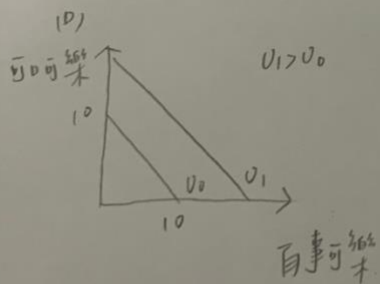 (D)
可口可樂
U₁>U₀
10
U₀
U₁
10
百事可樂